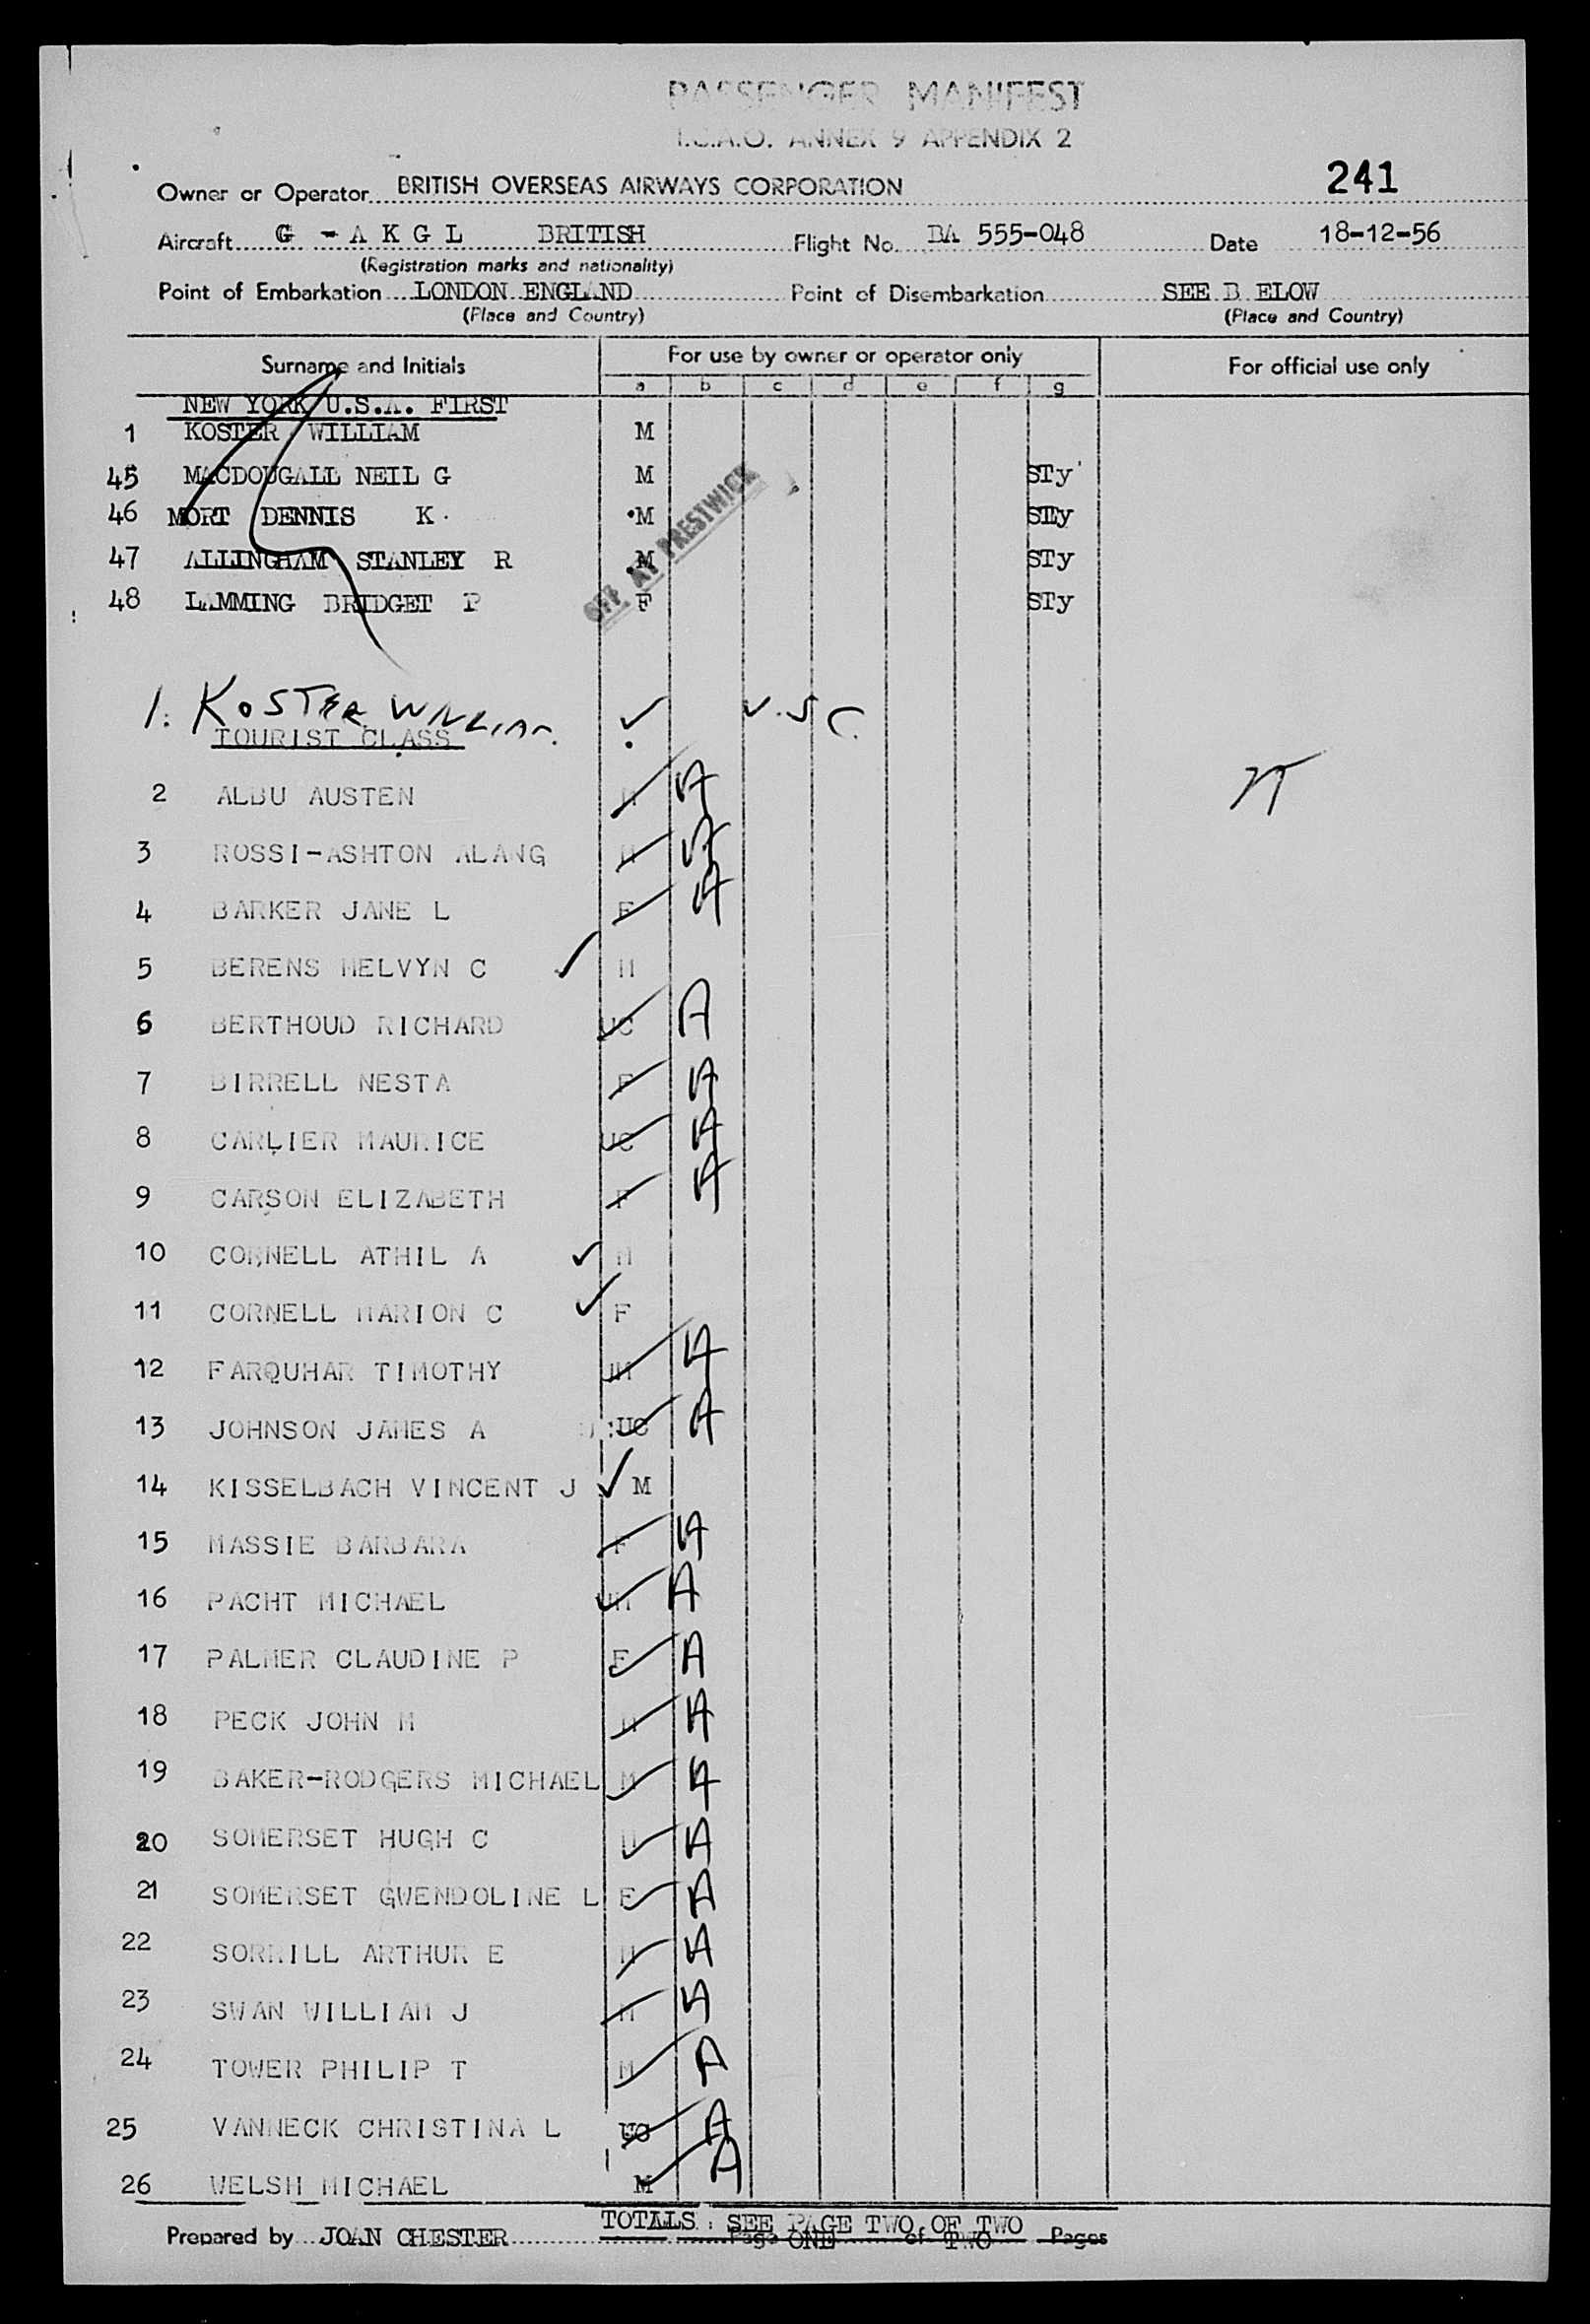 PASSENGER MANIFEST
I.C.A.O. ANNEX 9 APPENDIX 2
241
Owner or Operator BRITISH OVERSEAS AIRWAYS CORPORATION
Aircraft G - A K G L BRITISH Flight No. BA 555-048 Date 18-12-56
(Registration marks and nationality)
Point of Embarkation LONDON ENGLAND Point of Disembarkation SEE B ELOW
(Place and Country) (Place and Country)
Surname and Initials For use by owner or operator only For official use only
a b c d e f g
NEW YORK U.S.A. FIRST
1 KOSTER WILLIAM M
45 MACDOUGALL NEIL G M STy
46 MORT DENNIS K. M STy
47 ALLINGHAM STANLEY R M STy
48 LAMMING BRIDGET P F STy
OFF AT PRESTWICK
1. KOSTER WILLIAM ✓ U.S.C.
TOURIST CLASS
2 ALBU AUSTEN M A
3 ROSSI-ASHTON ALANG M A
4 BARKER JANE L F A
5 BERENS MELVYN C ✓ M
6 BERTHOUD RICHARD UC A
7 BIRRELL NESTA F A
8 CARLIER MAURICE UC A
9 CARSON ELIZABETH F A
10 CORNELL ATHIL A ✓ M
11 CORNELL MARION C ✓ F
12 FARQUHAR TIMOTHY UM A
13 JOHNSON JAMES A UC A
14 KISSELBACH VINCENT J ✓ M
15 MASSIE BARBARA F A
16 PACHT MICHAEL UM A
17 PALMER CLAUDINE P F A
18 PECK JOHN M M A
19 BAKER-RODGERS MICHAEL M A
20 SOMERSET HUGH C M A
21 SOMERSET GWENDOLINE L F A
22 SORRILL ARTHUR E M A
23 SWAN WILLIAM J M A
24 TOWER PHILIP T M A
25 VANNECK CHRISTINA L UC A
26 WELSH MICHAEL M A
TOTALS : SEE PAGE TWO OF TWO
Prepared by JOAN CHESTER Page ONE of TWO Pages